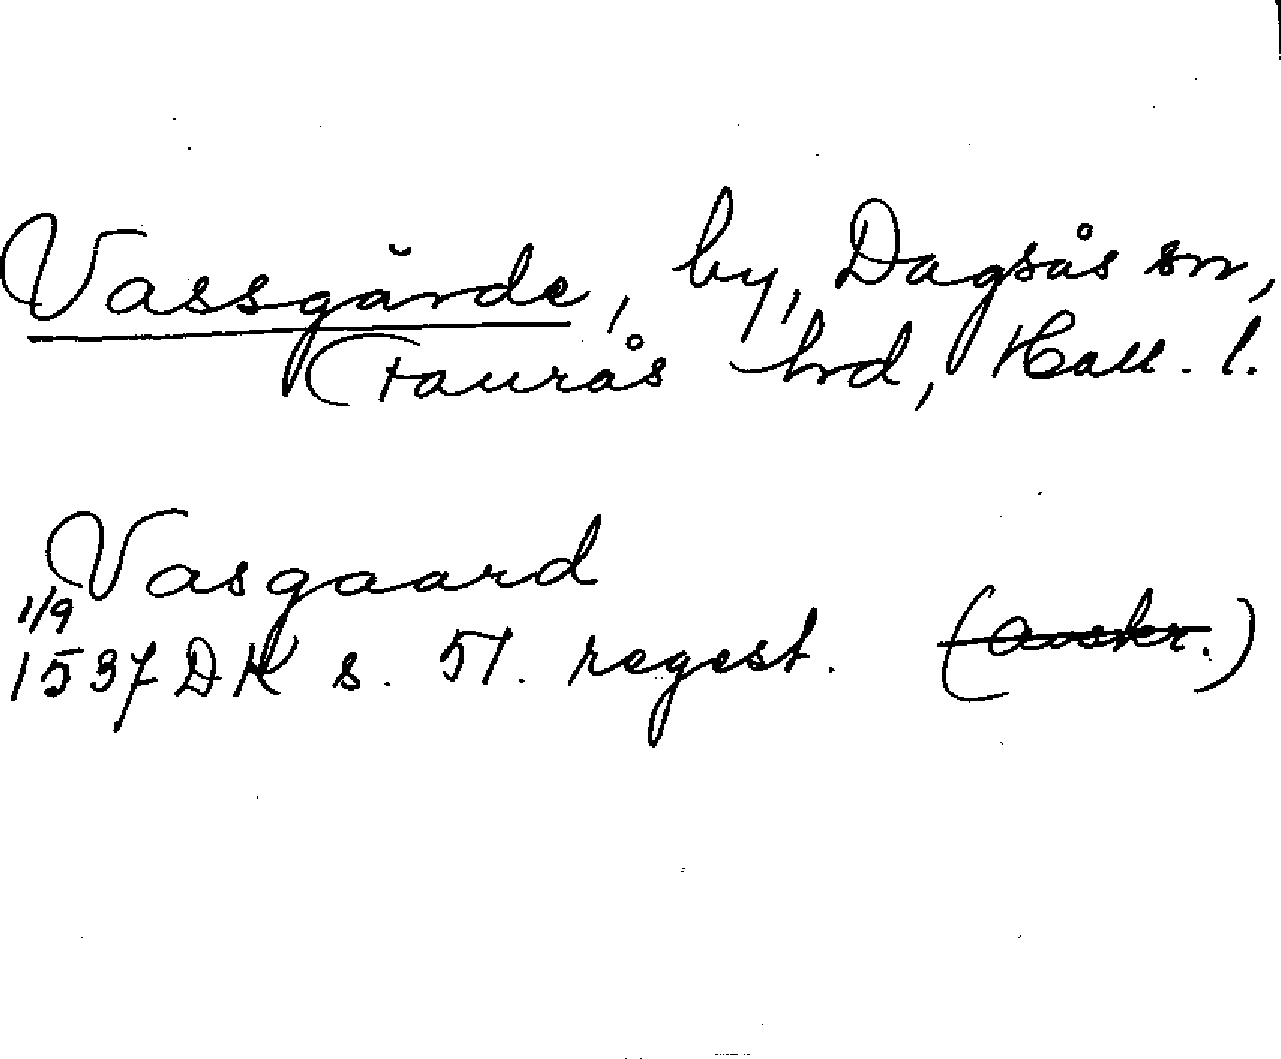 Vassgärde, by, Dagsås sn,
Faurås hd, Hall. l.
Vasgaard
1/9
1537 DK s. 51. regest. (avskr.)